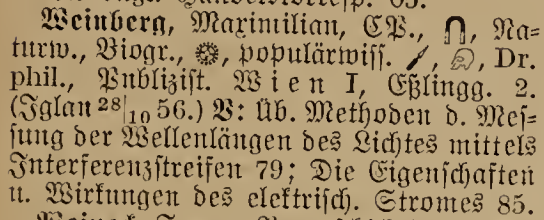 Weinberg, Maximilian, CP., Na=
turw., Biogr., populärwiss. Dr.
phil., Publizist. Wien I, Eßlingg. 2.
(Iglau 28/10 56.) V: Üb. Methoden d. Mes=
sung der Wellenlängen des Lichtes mittels
Interferenzstreifen 79; Die Eigenschaften
u. Wirkungen des elektrisch. Stromes 85.